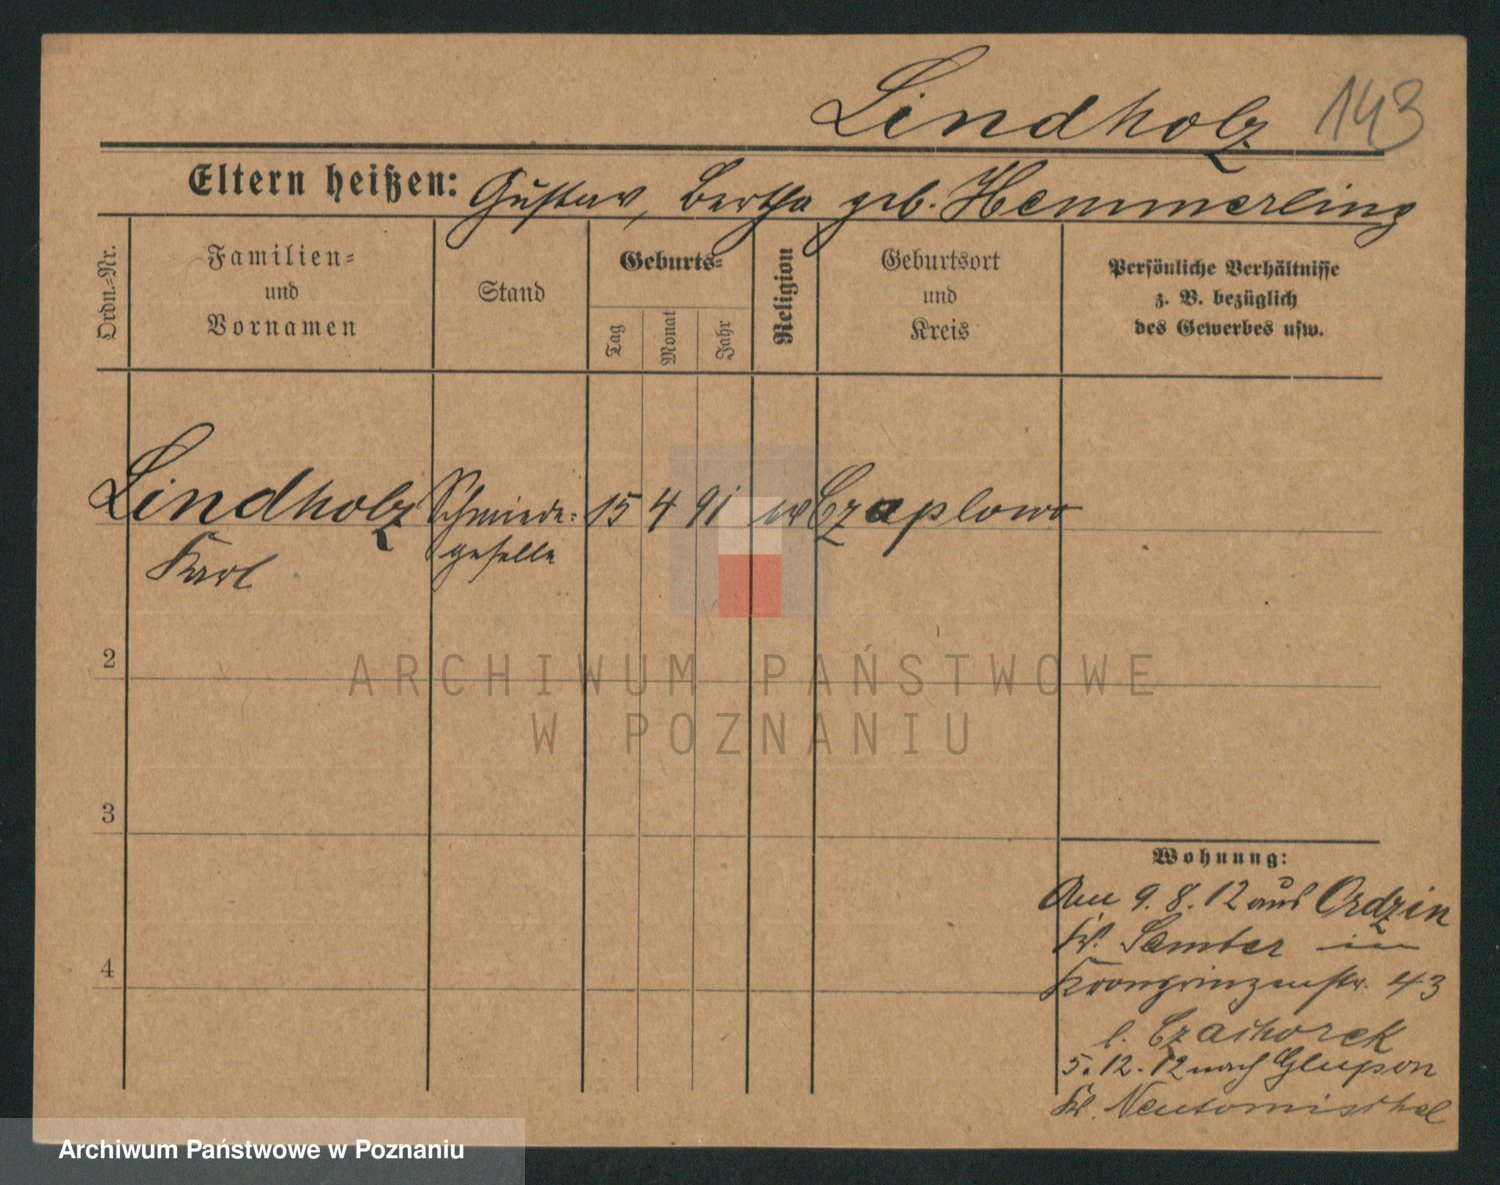 Lindholz 143
Eltern heißen: Gustav, Bertha geb. Hemmerling
Ordn.-Nr.
Familien-
und
Vornamen
Stand
Geburts-
Tag
Monat
Jahr
Religion
Geburtsort
und
Kreis
Persönliche Verhältnisse
z. B. bezüglich
des Gewerbes usw.
Lindholz Schmiede- 15 4 91 Czaplowo
Karl geselle
2
3
4
ARCHIWUM PAŃSTWOWE
W POZNANIU
Wohnung:
Am 9. 8. 12 aus Ordzin
Kr. Samter in
Kronprinzenstr. 43
b.
5. 12. 12 nach Glupon
Kr. Neutomischel
Archiwum Państwowe w Poznaniu